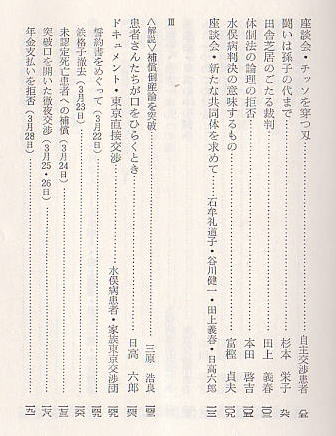 座談会・チッソを穿つ刃……自主交渉患者
闘いは孫子の代まで……杉本 栄子
田舎芝居のごたる裁判……田上 義春
体制法の論理の拒否……本田 啓吉
水俣病判決の意味するもの……富樫 貞夫
座談会・新たな共同体を求めて……石牟礼道子・谷川健一・田上義春・日高六郎
Ⅲ
〈解説〉補償倒産論を突破……三原 浩良
患者さんたちが口をひらくとき……日高 六郎
ドキュメント・東京直接交渉……水俣病患者・家族東京交渉団
誓約書をめぐって(3月22日)
鉄格子撤去(3月23日)
未認定死亡患者への補償(3月24日)
突破口を開いた徹夜交渉(3月25・26日)
年金支払いを拒否(3月28日)